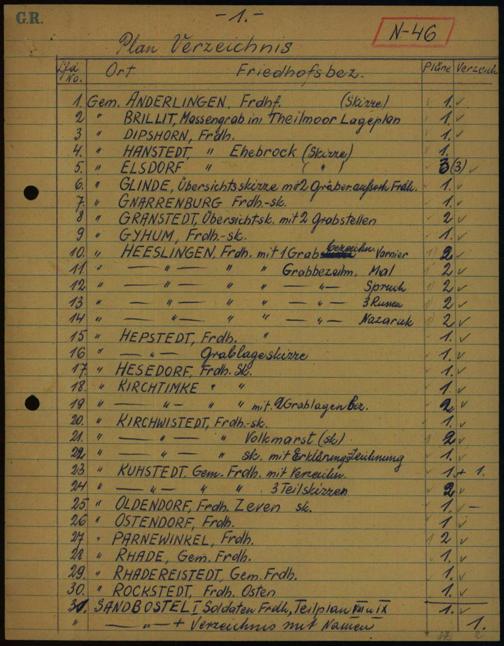 G.R.
-1.-
N-46
Plan Verzeichnis
Lfd No. Ort Friedhofsbez. Pläne Verzeich
1. Gem. ANDERLINGEN, Frdhf. (Skizze) 1. ✓
2 " BRILLIT, Massengrab im Theilmoor Lageplan 1. ✓
3 " DIPSHORN, Frdh. 1. ✓
4. " HANSTEDT, " Ehebrock (Skizze) 1.
5. " ELSDORF " ( " ) 3 (3) ✓
6. " GLINDE, Übersichtsskizze m. 2 Gräber außerh. Frdh. 1. ✓
7. " GNARRENBURG Frdh.-sk. 1. ✓
8 " GRANSTEDT, Übersichtsk. mit 2 Grabstellen 2 ✓
9 " GYHUM, Frdh.-sk. 1. ✓
10. " HEESLINGEN, Frdh. mit 1 Grab bezeichn. Varnier 2 ✓
11 " — " — " " Grabbezeihn. Mal 2 ✓
12 " — " — " " — " — Spruch 2 ✓
13 " — " — " " — " — 3 Russen 2 ✓
14 " — " — " " — " — Nazaruk 2 ✓
15 " HEPSTEDT, Frdh. " 1. ✓
16 " — " — Grablageskizze 1. ✓
17. " HESEDORF, Frdh. Sk. 1. ✓
18 " KIRCHTIMKE " " 1. ✓
19 " — " — " " mit 2 Grablagen Bez. 2 ✓
20. " KIRCHWISTEDT, Frdh.-sk. 1. ✓
21. " — " — " Volkmarst (sk) 2 ✓
22 " — " — " sk. mit Erklärungszeichnung 1. ✓
23 " KUHSTEDT, Gem. Frdh. mit Verzeichn. 1. + 1.
24 " — " — " " 3 Teilskizzen 2 ✓
25 " OLDENDORF, Frdh. Zeven sk. 1. ✓ —
26 " OSTENDORF, Frdh. 1. ✓
27 " PARNEWINKEL, Frdh. 2 ✓
28 " RHADE, Gem. Frdh. 1. ✓
29. " RHADEREISTEDT, Gem. Frdh. 1. ✓
30. " ROCKSTEDT, Frdh. Osten 1. ✓
31. SANDBOSTEL I Soldaten Frdh, Teilplan VIII u IX 1. ✓
" — " — + Verzeichnis mit Namen 1.